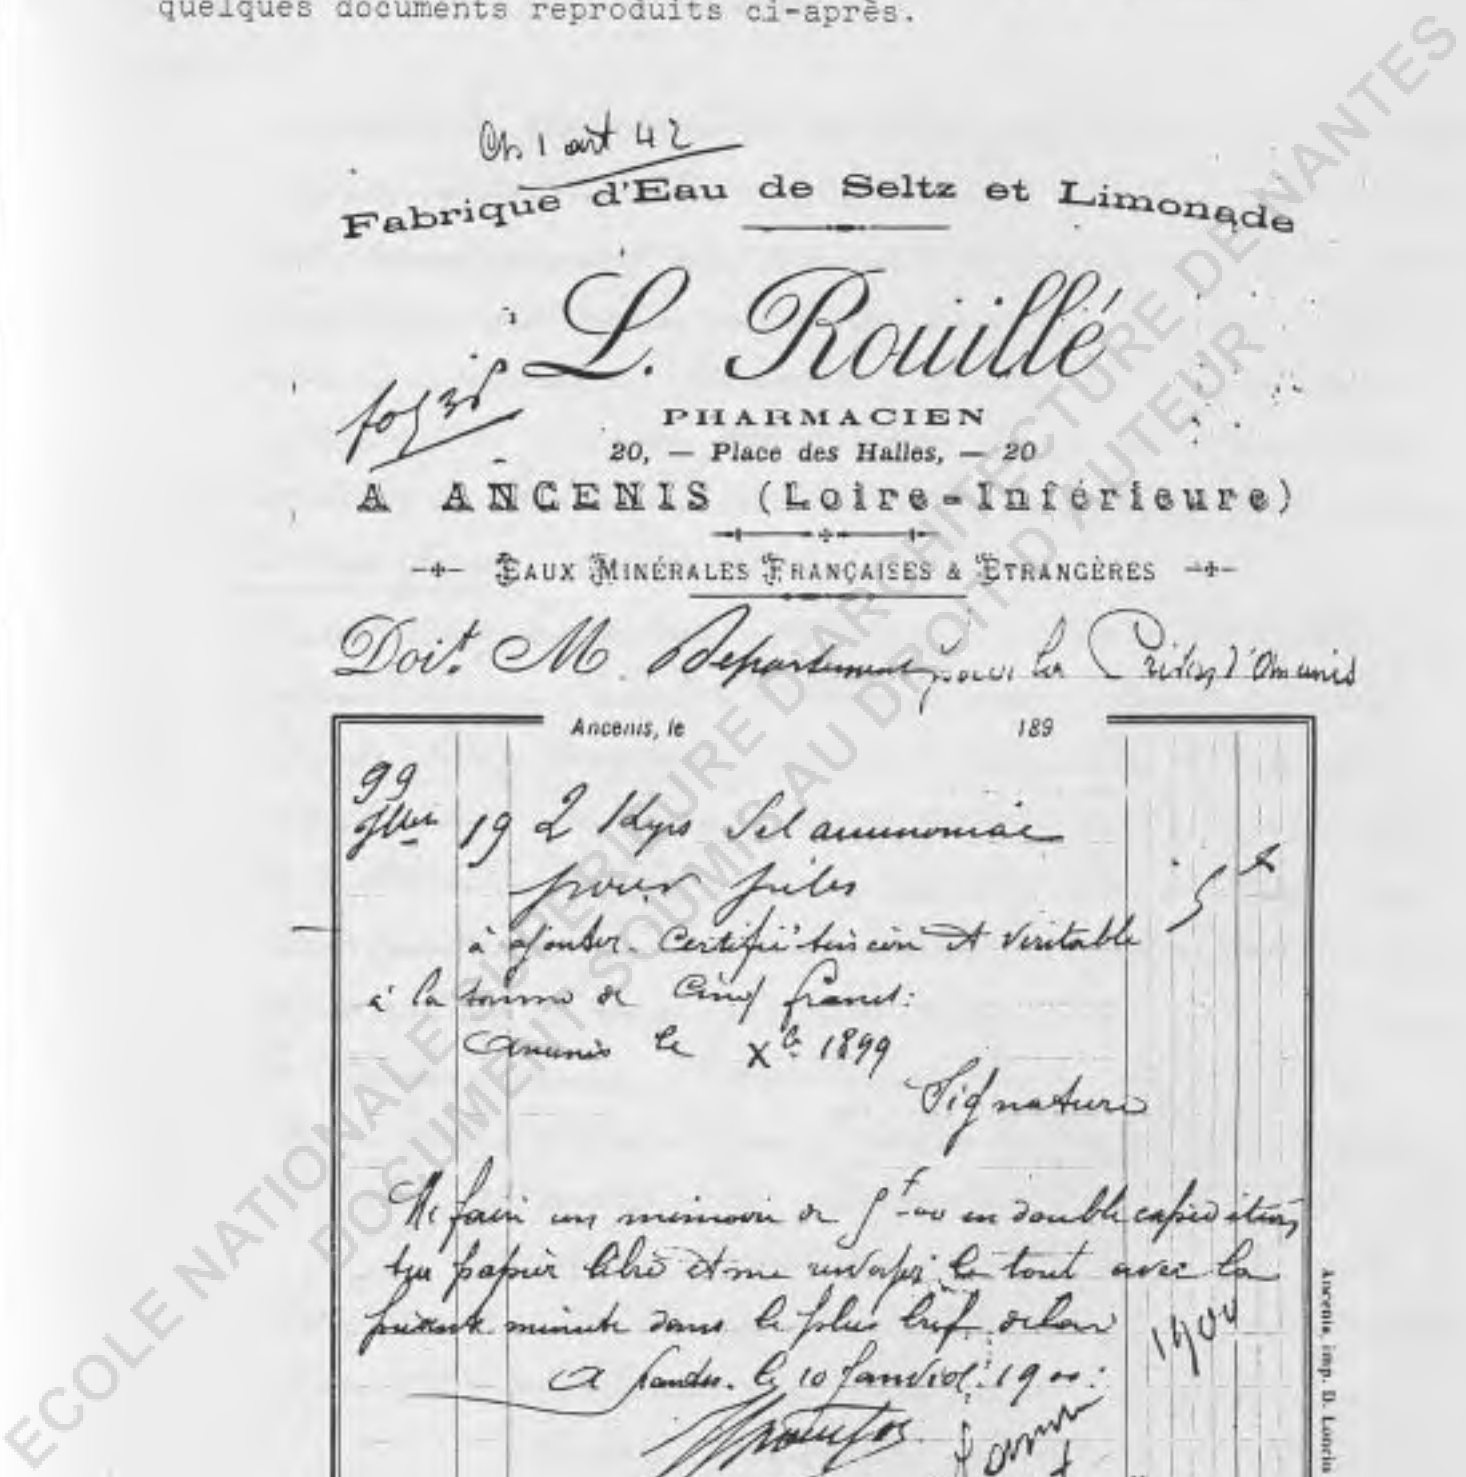 quelques documents reproduits ci-après.
Ch 1 art 42
Fabrique d'Eau de Seltz et Limonade
L. Rouillé
PHARMACIEN
20, — Place des Halles, — 20
A ANCENIS (Loire-Inférieure)
EAUX MINÉRALES FRANÇAISES & ETRANGÈRES
Doit M. Département pour la Prison d'Ancenis
Ancenis, le 189
99
19 2 Kgs Sel ammoniac
pour piles 5 f
à ajouter. Certifié sincère et véritable
à la somme de Cinq francs:
Ancenis le Xbre 1899
Signature
Me faire un mémoire de 5f00 en double expédition
sur papier libre et me renvoyer le tout avec la
présente minute dans le plus bref délai
1900
A Nantes. le 10 Janvier 1900:
Ancenis, imp. D. Loncin
ECOLE NATIONALE SUPERIEURE D'ARCHITECTURE DE NANTES
DOCUMENT SOUMIS AU DROIT D'AUTEUR